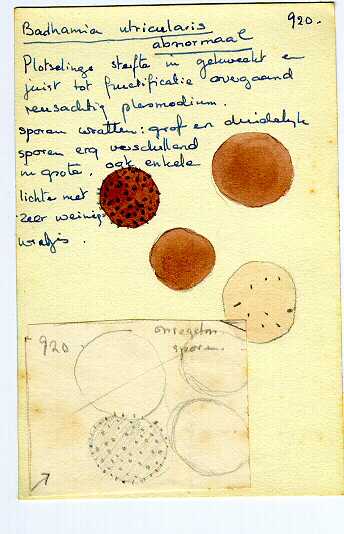 Badhamia utricularis 920.
abnormaal
Plotselinge sterfte in gekweekt en
juist tot fructificatie overgaand
reusachtig plasmodium.
sporen wratten: grof en duidelijk
sporen erg verschillend
in grote. ook enkele
lichte met
zeer weinig
wratjes.
920 onregelm.
sporen.